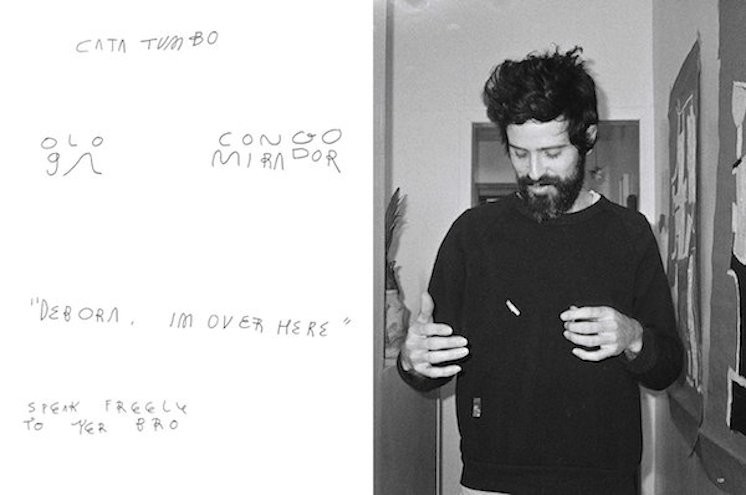 CATA TUMBO
OLO
gA
CONGO
MIRADOR
"DEBORA, IM OVER HERE"
SPEAK FREELY
TO YER BRO